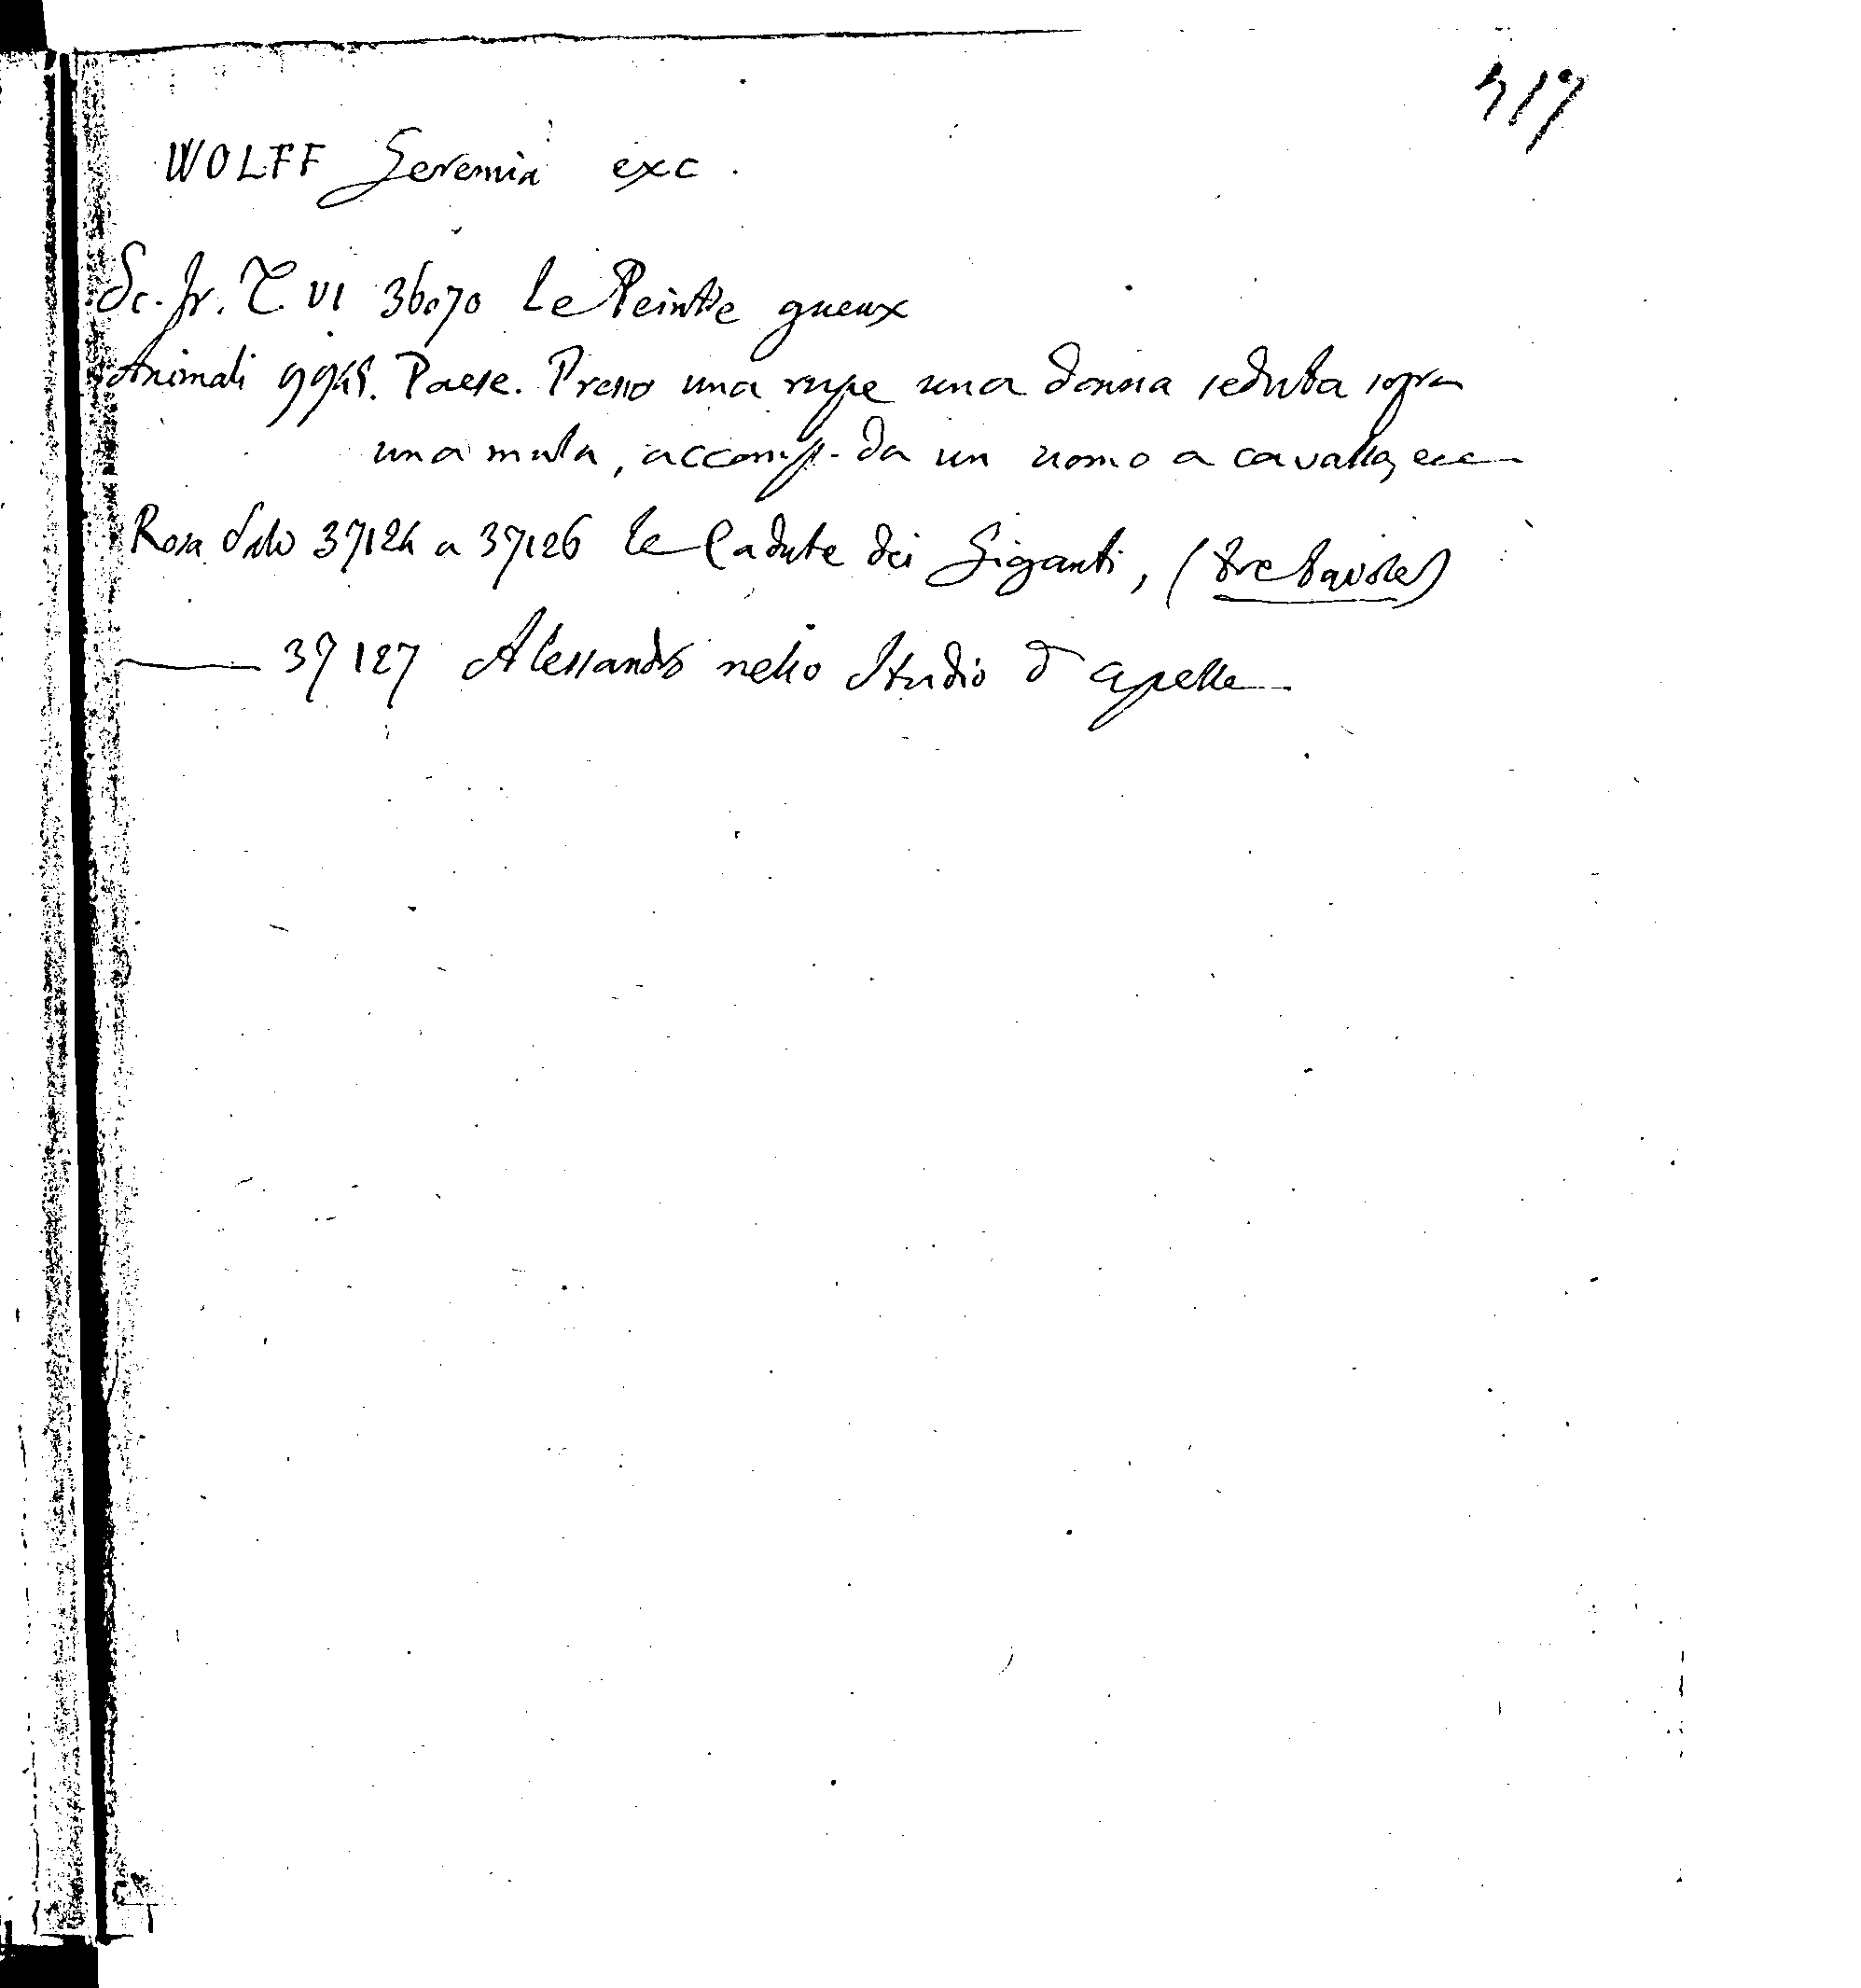 417
WOLFF Geremia exc.
Sc. fr. T. VI 36070 Le Peintre gueux
Animali 9945. Paese. Presso una rupe una donna seduta sopra
una mula, accomp. da un uomo a cavallo, ecc
Rosa Salv 37124 a 37126 le Cadute dei Giganti, (tre tavole)
—— 37127 Alessandro nello Studio d'Apelle